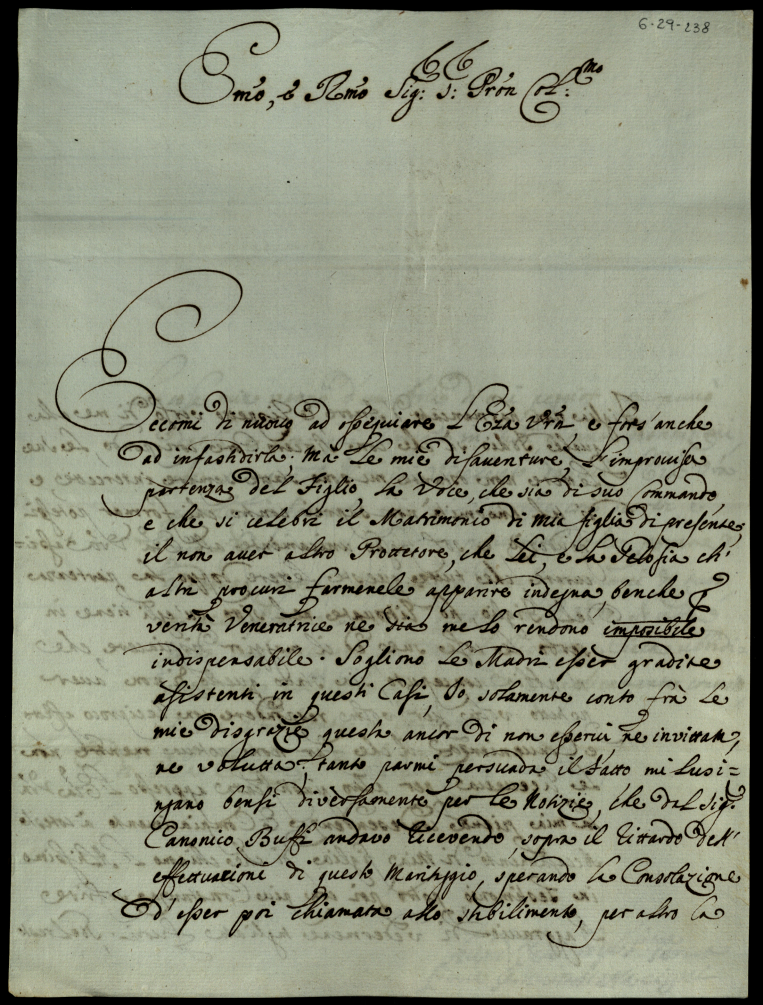 6-29-238
Emo, e Rmo Sig: S: Pron Col:mo
Eccomi di nuovo ad osseguiare L'Eza Vrã, e fors'anche
ad infastidirla; Mà Le mie disaventure, L'improvisa
partenza del Figlio, La Voce, che sia di suo Commando,
e che si celebri il Matrimonio di mia figlia di presente,
il non aver altro Protetore, che Lei, e La Gelosia ch'
altri procuri farmenele apparire indegna, benche p
verità Veneratrice ne sia me Lo rendono imposibile
indispensabile. Sogliono Le Madri esser gradite
asistenti in questi Casi, Io solamente conto frà Le
mie disgrazie questa ancor di non esservi, ne invittata,
ne voluta; tanto parmi persuada il Fatto mi Lusi=
ngano bensi diversamente per Le Notizie, che dal Sig:
Canonico Buffi andavo ricevendo, sopra il rittardo dell'
effettuazioni di questo Maritaggio, sperando la Consolazione
d'esser poi chiamata allo stabilimento, per altro la